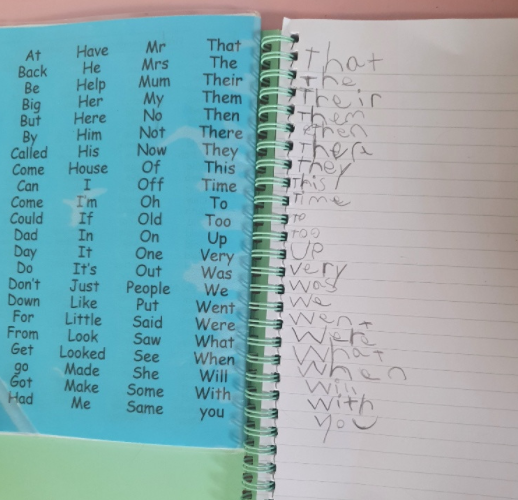 At Have Mr That
Back He Mrs The
Be Help Mum Their
Big Her My Them
But Here No Then
By Him Not There
Called His Now They
Come House Of This
Can I Off Time
Come I'm Oh To
Could If Old Too
Dad In On Up
Day It One Very
Do It's Out Was
Don't Just People We
Down Like Put Went
For Little Said Were
From Look Saw What
Get Looked See When
go Made She Will
Got Make Some With
Had Me Same you
That
The
Their
Them
Then
Thera
They
This
Time
to
too
Up
very
was
we
went
were
what
when
will
with
you